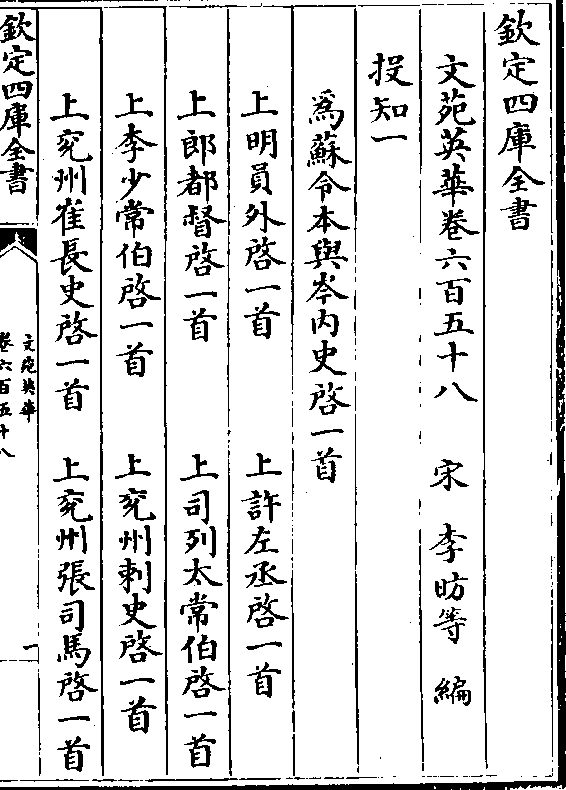 欽定四庫全書
文苑英華卷六百五十八 宋 李昉等 編
投知一
為蘇令本與岑内史啓一首
上明員外啓一首 上許左丞啓一首
上郎都督啓一首 上司列太常伯啓一首
上李少常伯啓一首 上兖州刺史啓一首
上兖州崔長史啓一首 上兖州張司馬啓一首
欽定四庫全書
文苑英華
卷六百五十八
一